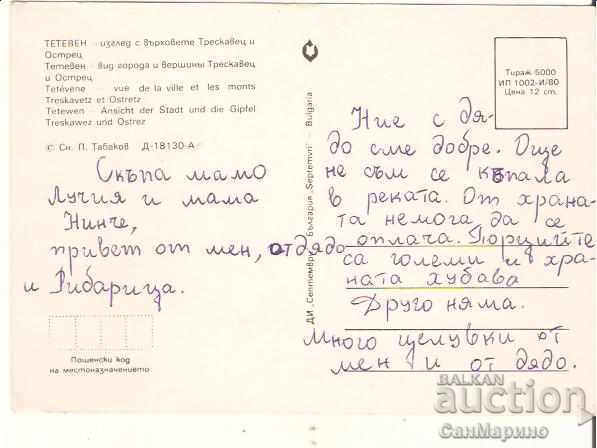 ТЕТЕВЕН - изглед с върховете Трескавец и
Острец
Тетевен - вид города и вершины Трескавец
и Острец
Tetévène - vue de la ville et les monts
Treskavetz et Ostretz
Tetewen - Ansicht der Stadt und die Gipfel
Treskawez und Ostrez
© Сн. П. Табаков Д-18130-А
Скъпа мамо
Лучия и мама
Нинче,
привет от мен, от дядо
и Рибарица.
Пощенски код
на местоназначението
ДИ „Септември“ - България „Septemvri“ - Bulgaria
Тираж 5000
ИП 1002-И/80
Цена 12 ст.
Ние с дя-
до сме добре. Още
не съм се къпала
в реката. От храна-
та немога да се
оплача. Порциите
са големи и хра-
ната хубава
Друго няма.
Много целувки от
мен и от дядо.
BALKAN
auction
СанМарино